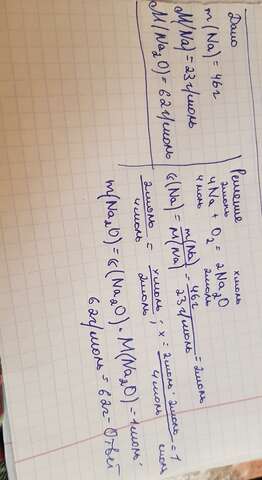 Дано
m(Na)=46г
M(Na)=23г/моль
M(Na2O)=62г/моль
Решение
2моль хмоль
4Na + O2 = 2Na2O
4моль 2моль
m(Na) 46г
б(Na) = ─── = ─── = 2моль
M(Na) 23г/моль
2моль хмоль 2моль · 2моль
─── = ─── ; х = ─── = 1
4моль 2моль 4моль моль
m(Na2O) = б(Na2O) · M(Na2O) = 1моль ·
62г/моль = 62г - Ответ